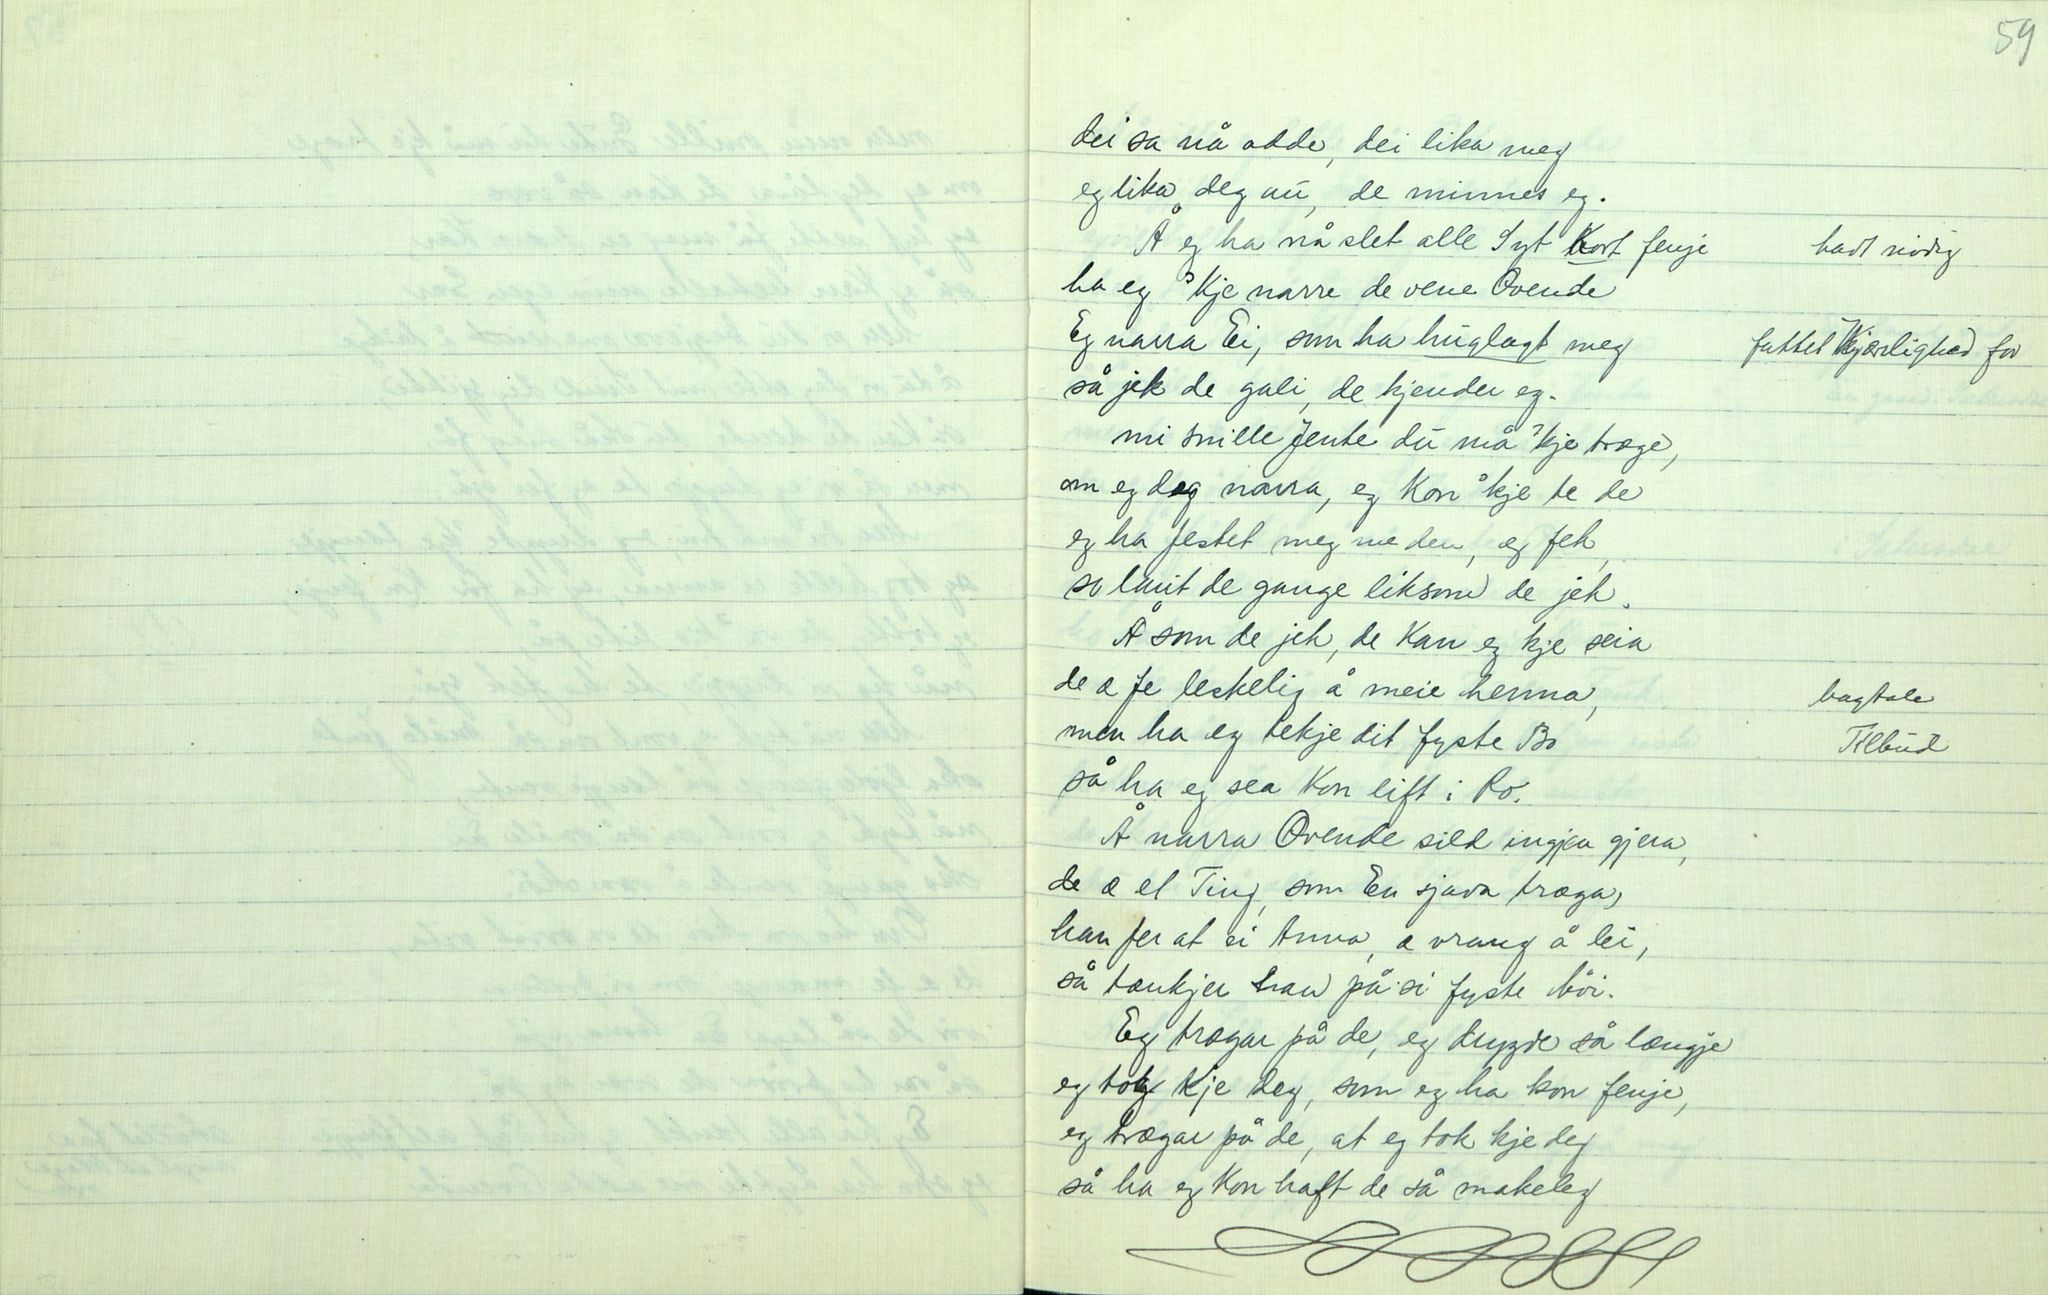 59
dei sa nå adde, dei lika meg
eg lika deg au, de minnes eg.
Å eg ha nå slet alle Syt kort fenje hadt nödig
ha eg 'kje narre de vene Ovende
Eg narra Ei, som ha huglagt meg fattet Kjærlighed for
så jek de gali, de kjender eg.
mi snille Jente du må 'kje træge,
om eg deg narra, eg Kon 'kje te de
eg ha festet meg me den, eg fek,
so laut de gange liksom de jek.
Å som de jek, de Kan eg kje seia
de æ fe leskelig å meie henna, bagtale
men ha eg tekje dit fyste Bo Tilbud
så ha eg sea Kon lift i Ro.
Å narra Ovende sild ingjen gjera,
de æ et Ting, som En sjava træga,
han fer at ei Anna, æ vrang å lei,
så tænkjer han på si fyste böi.
Eg trægar på de, eg drygde så længje
eg tok kje deg, som eg ha kon fenje,
eg trægar på de, at eg tok kje deg
så ha eg Kon haft de så makeleg